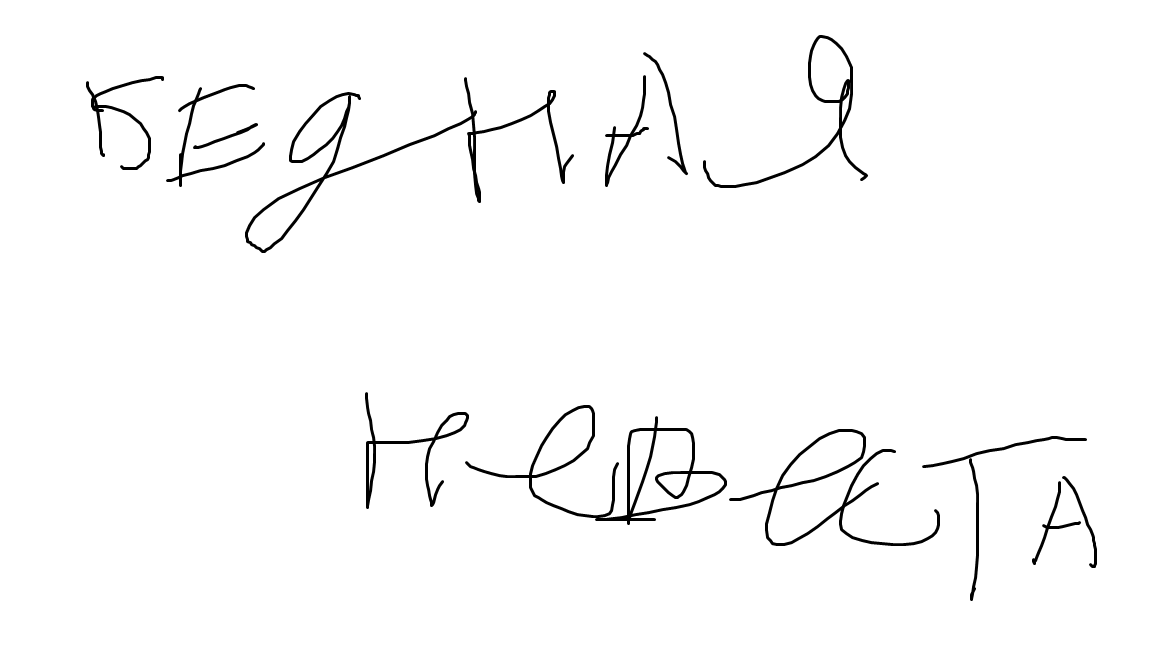 БЕДНАЯ
НЕВЕСТА